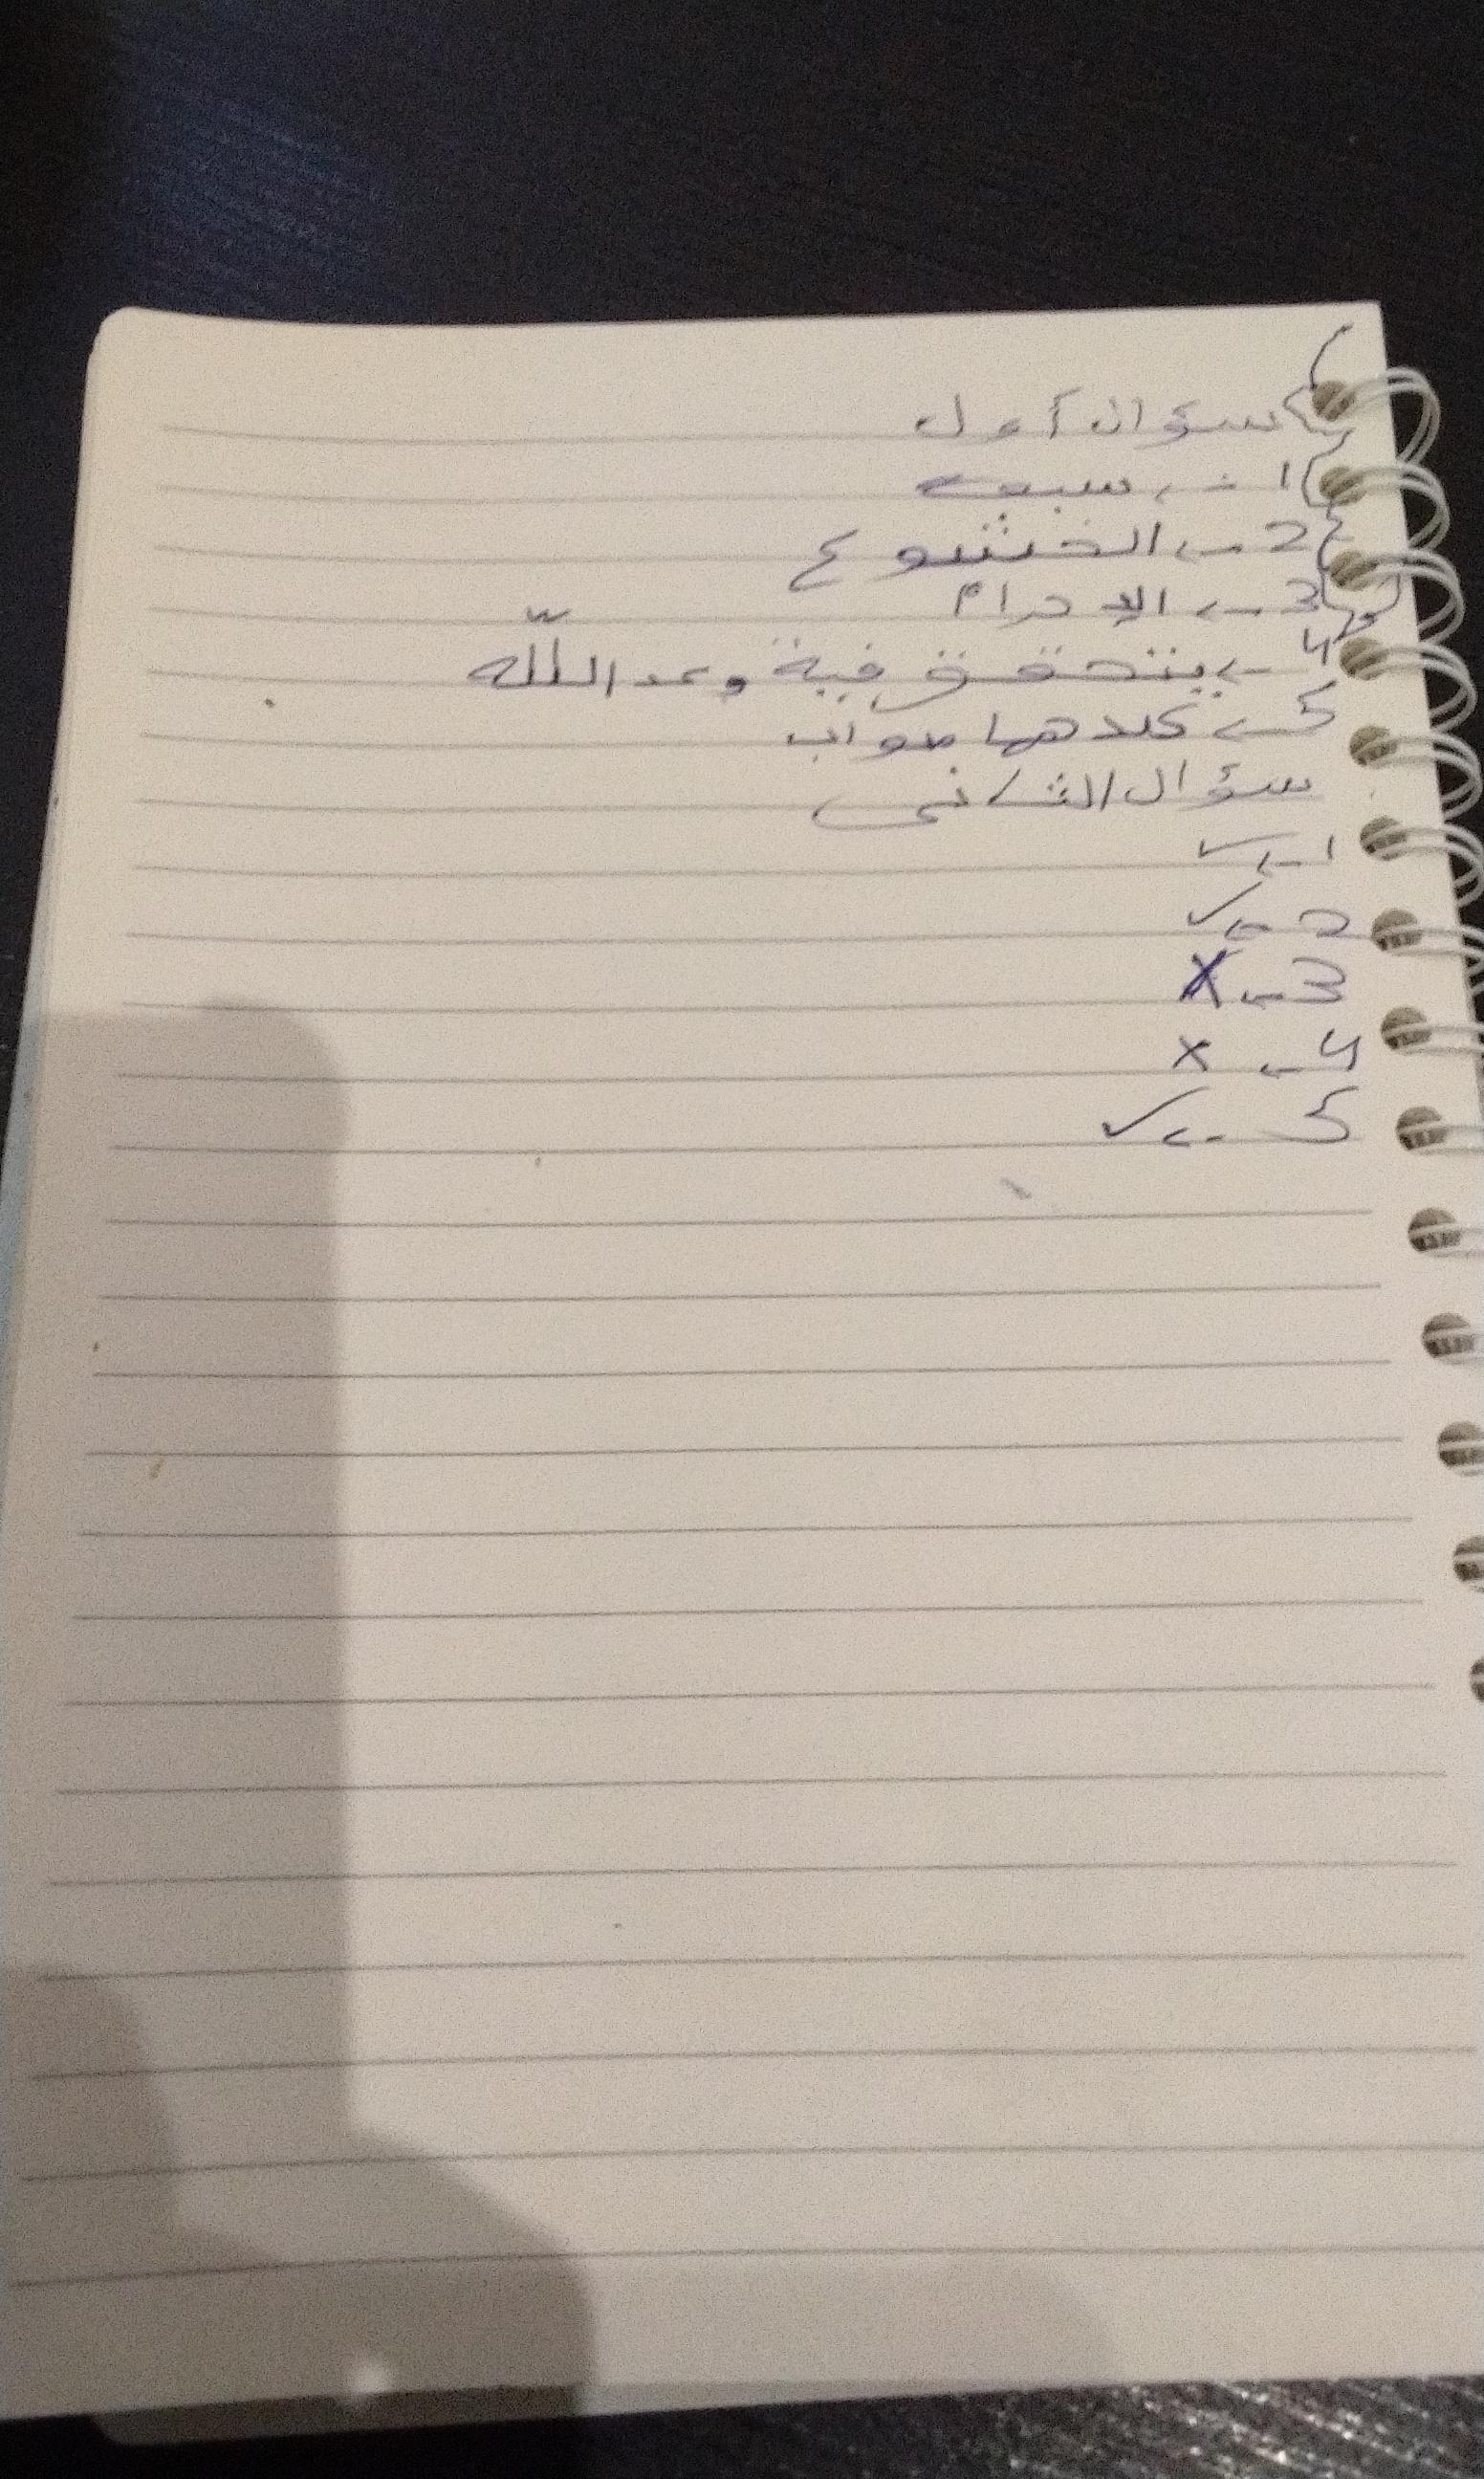 سؤال أول
1 - سبب
2 - الخشوع
3 - الإحرام
4 - يتحقق فية وعد اللّه
5 - كلاهما صواب
سؤال الثاني
1 - ✓
2 - ✓
3 - X
4 - x
5 - ✓